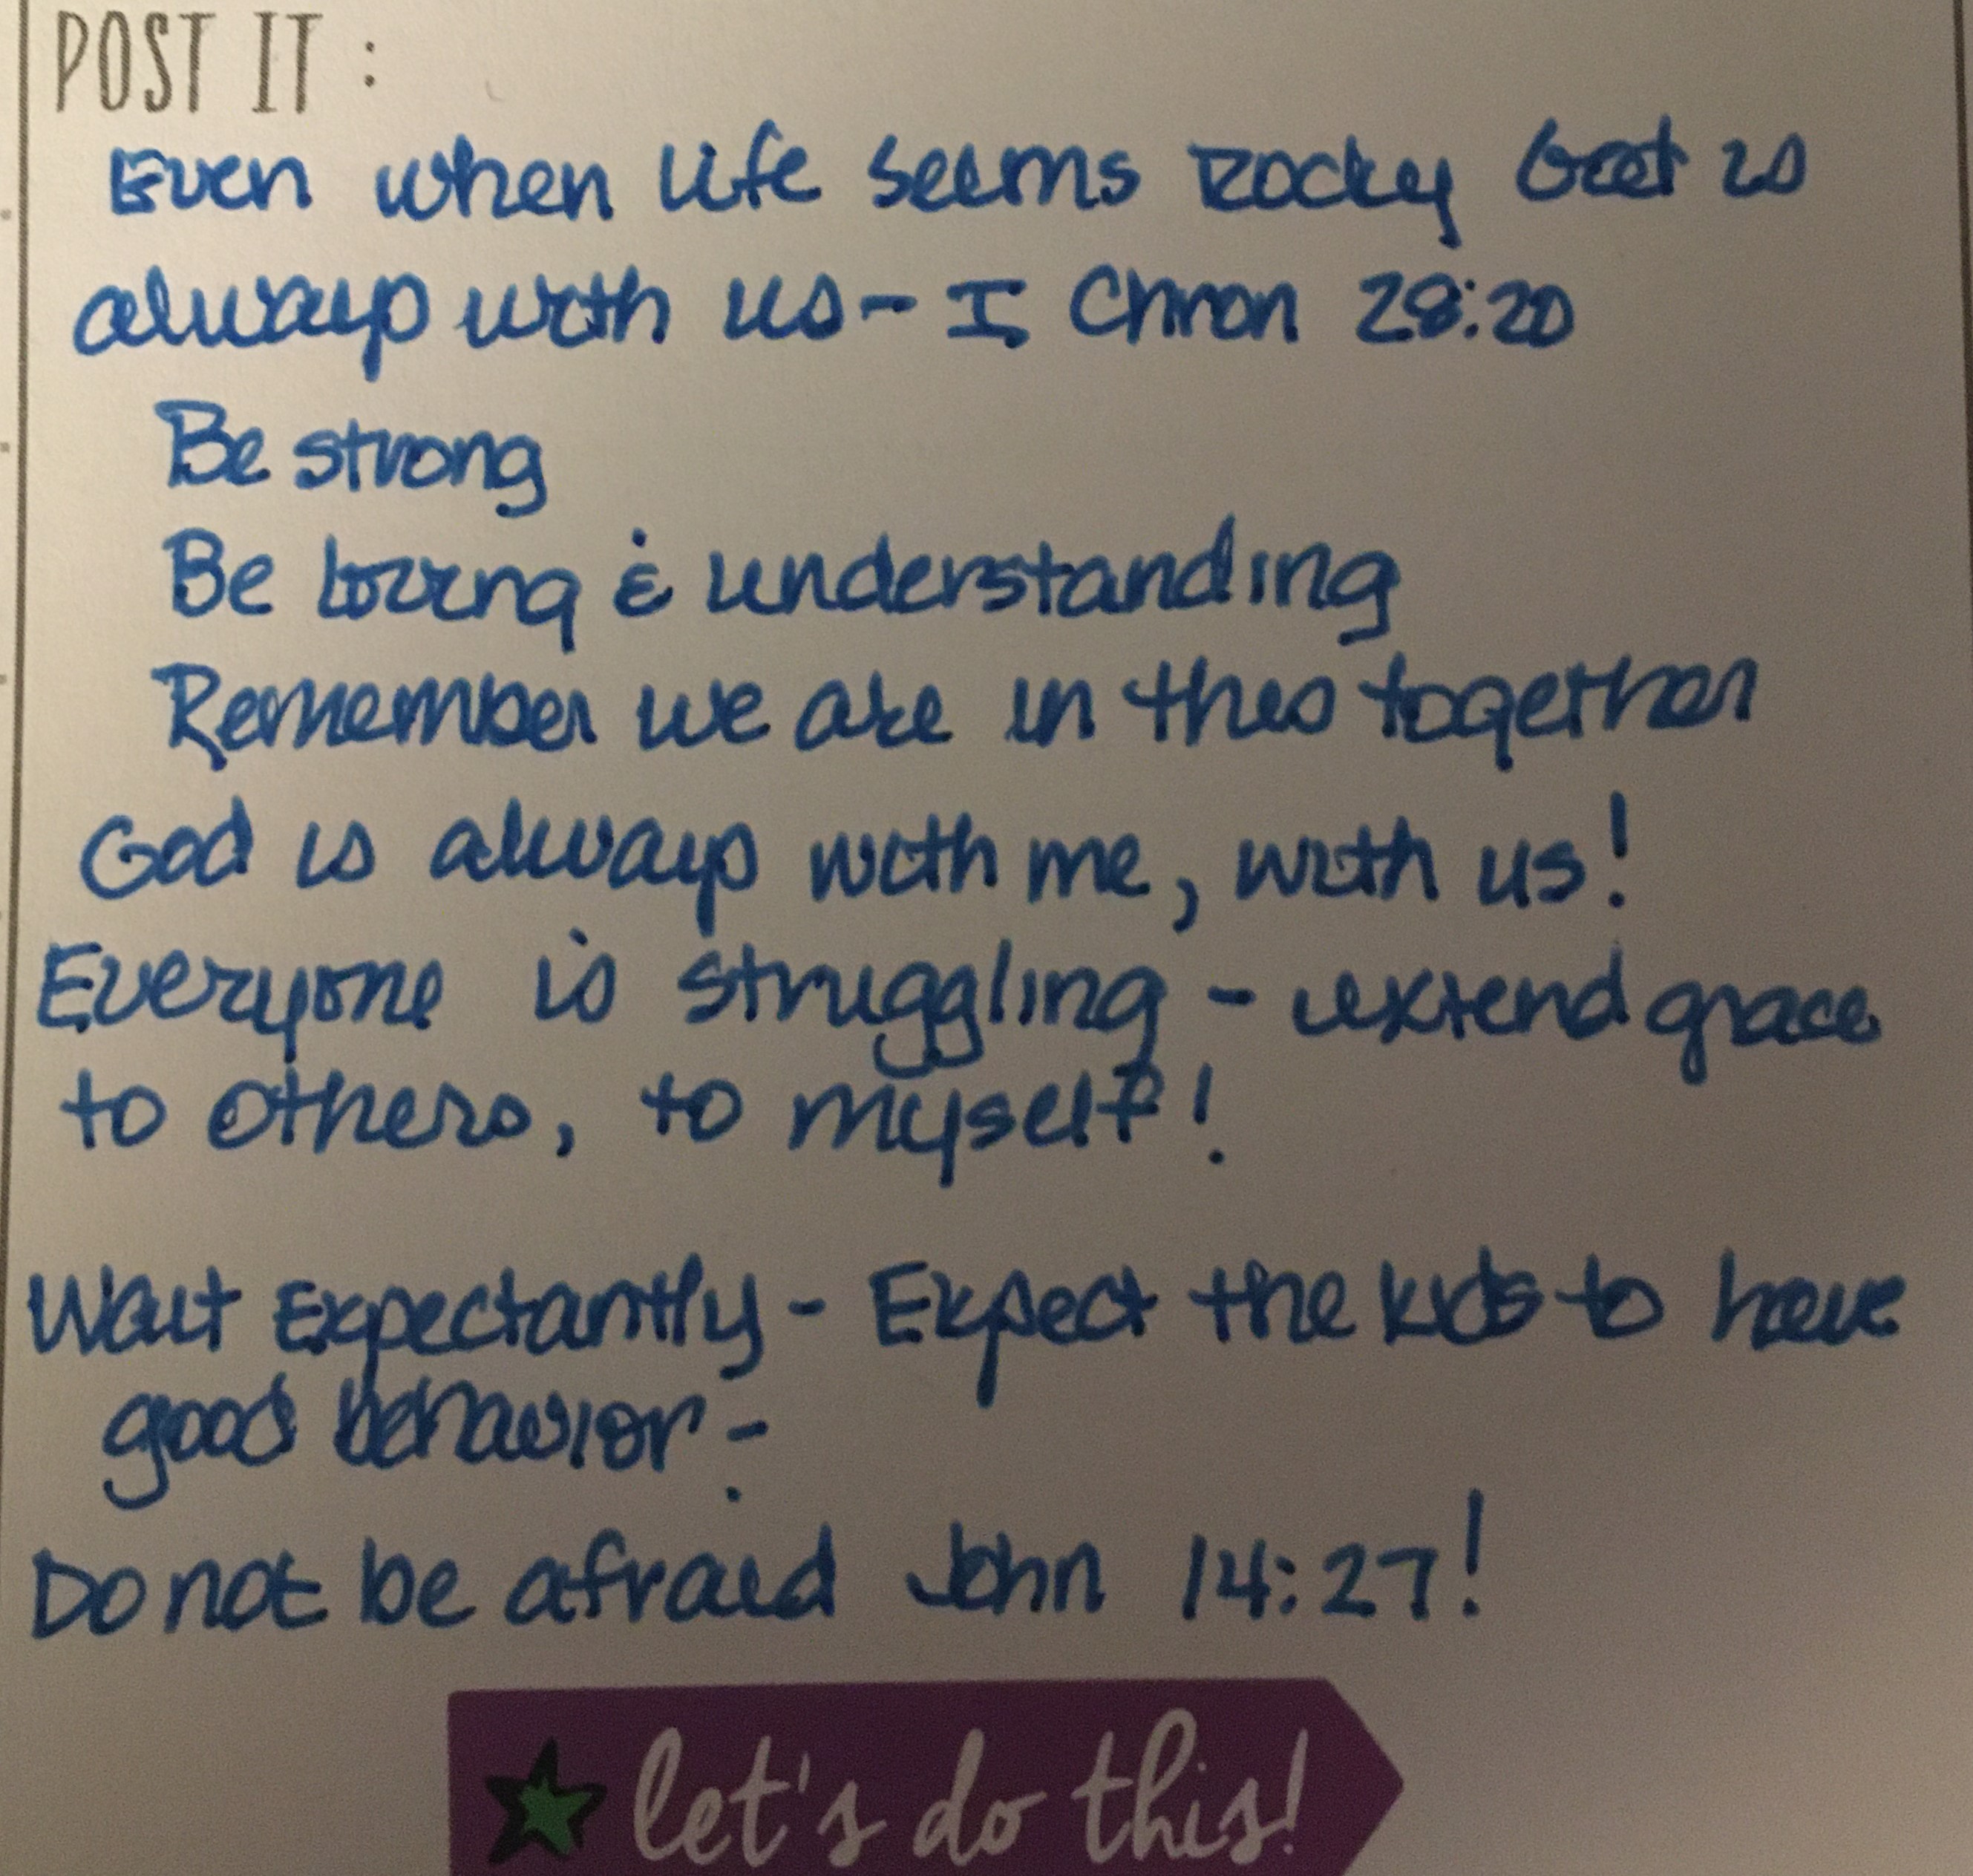 POST IT :
Even when life seems Rocky God is
always with us - I Chron 28:20
Be strong
Be loving & understanding
Remember we are in this together
God is always with me, with us!
Everyone is struggling - extend grace
to others, to myself!
Wait Expectantly - Expect the kids to have
good behavior -
Do not be afraid John 14:27!
let's do this!